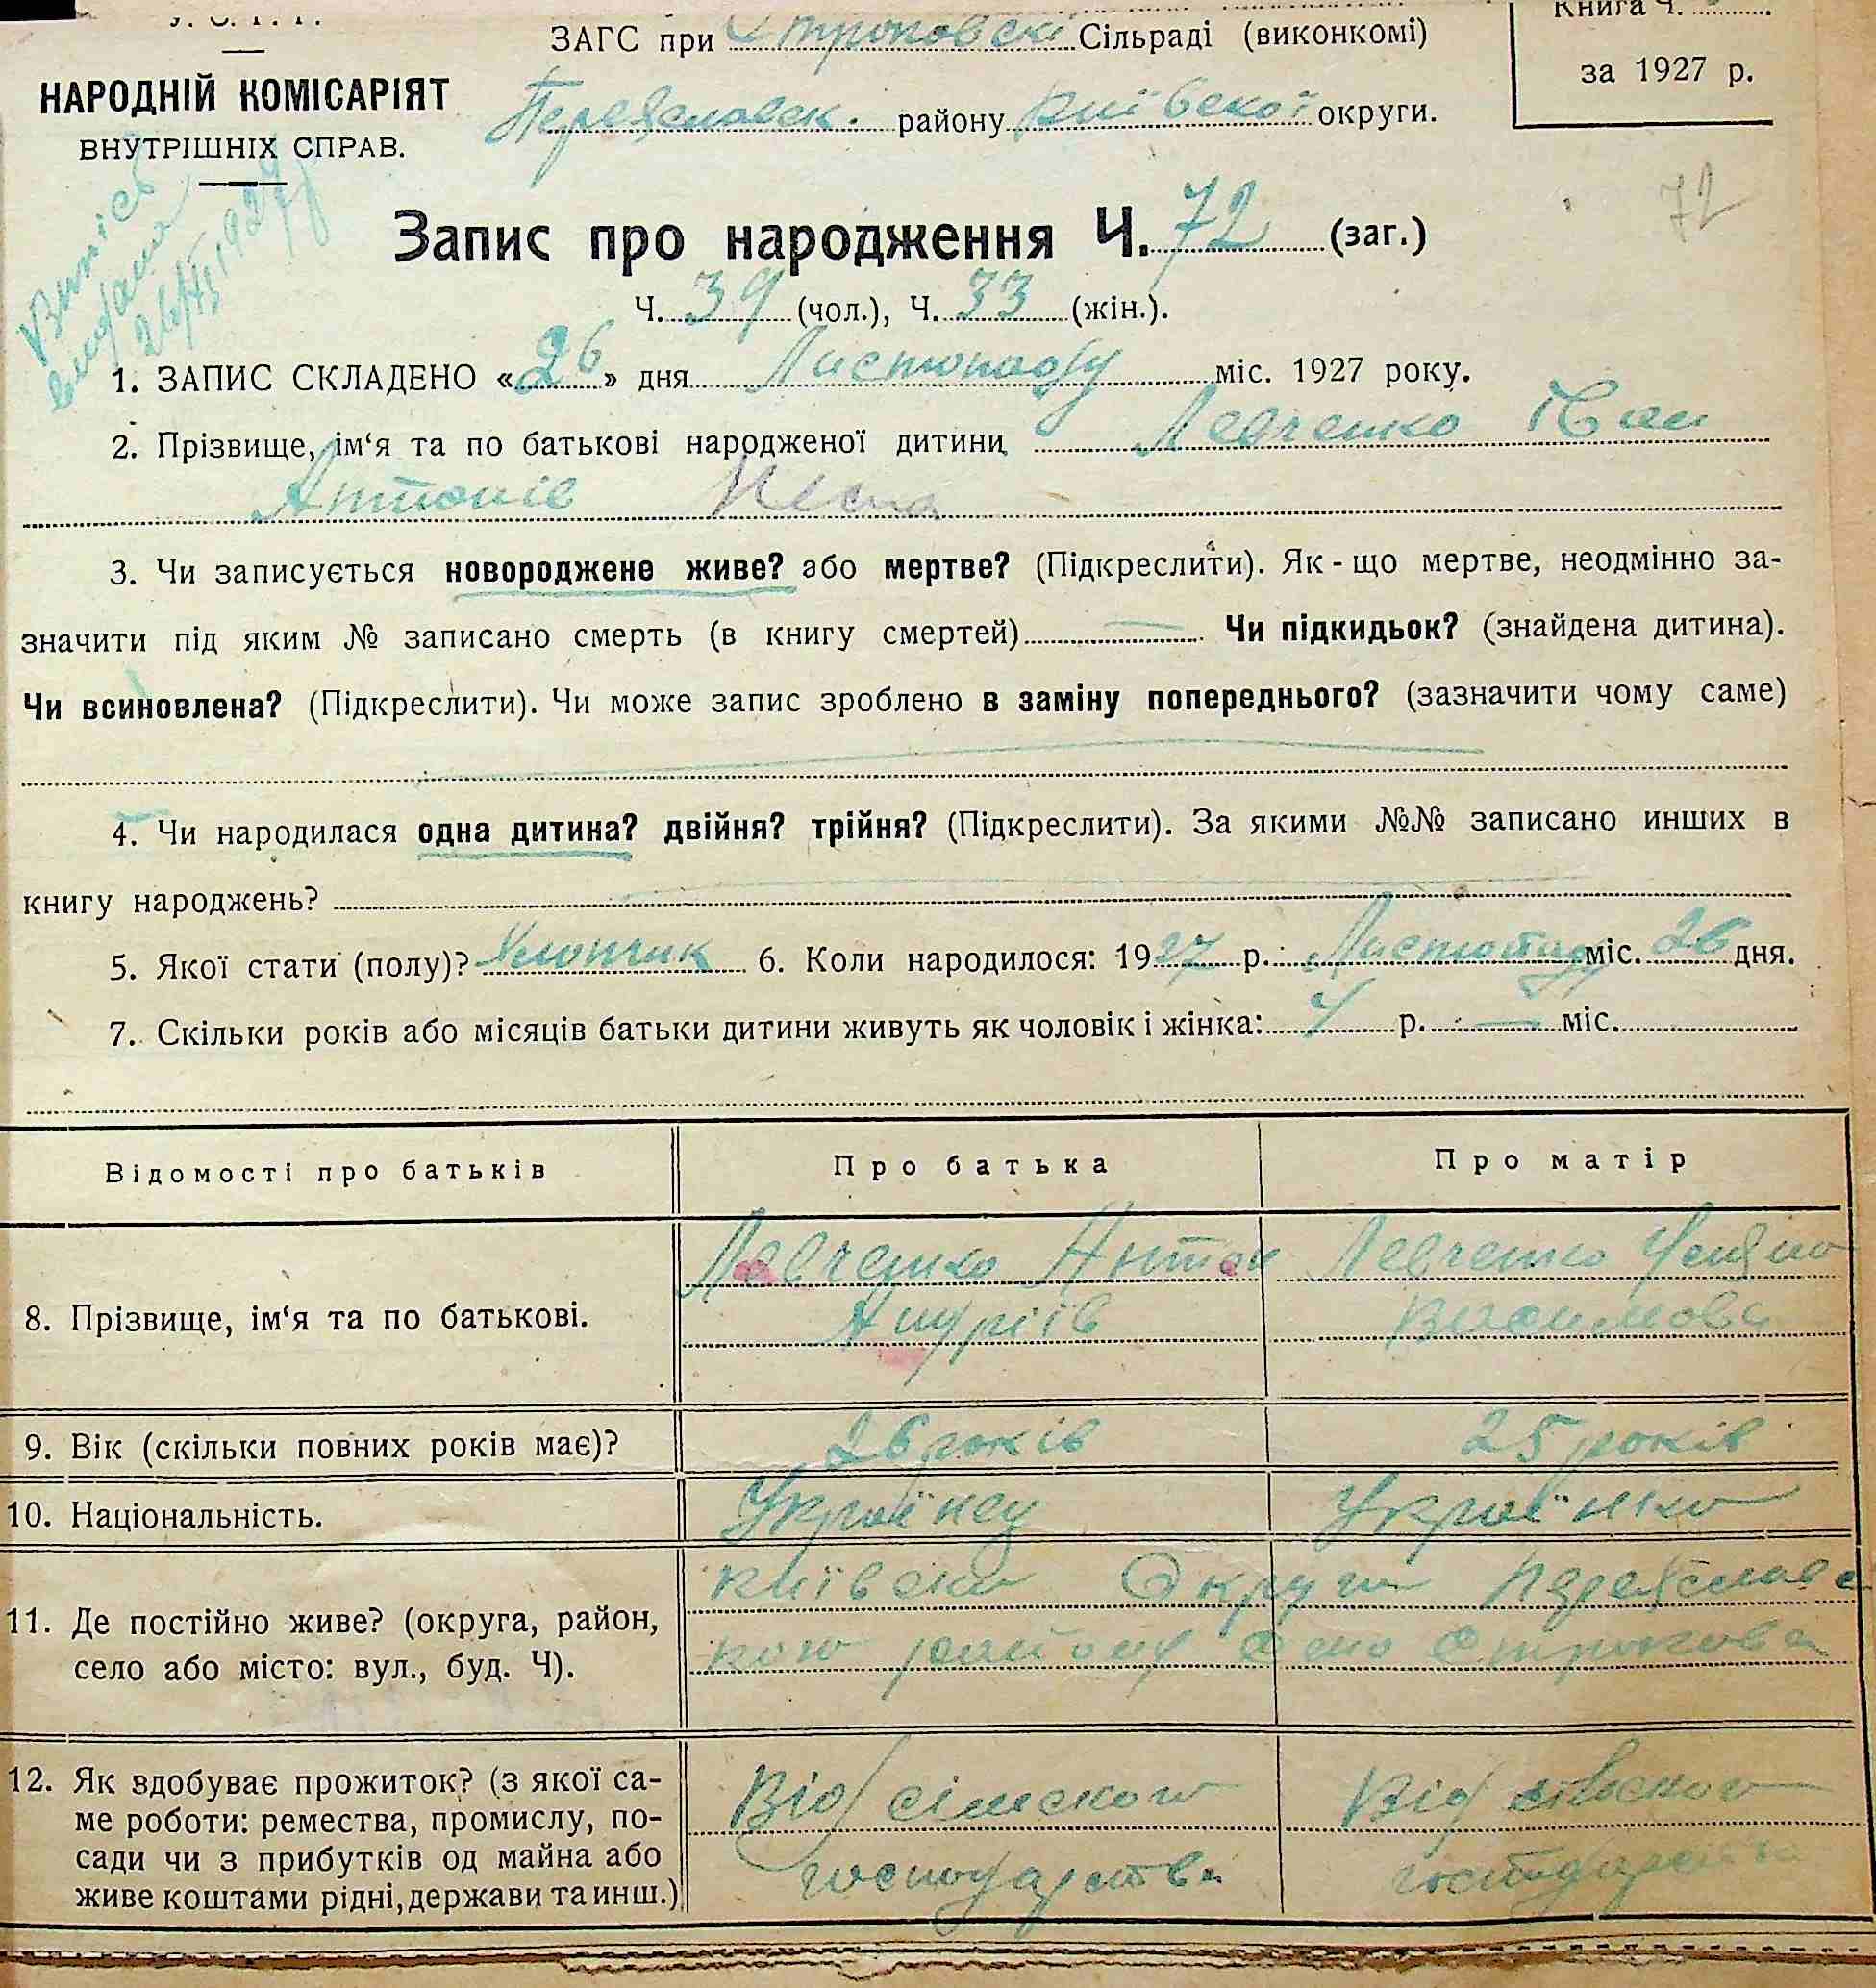 У. С. Р. Р.
ЗАГС при Строковскі Сільраді (виконкомі)
Книга Ч.
НАРОДНІЙ КОМІСАРІЯТ
ВНУТРІШНІХ СПРАВ.
Переяславск. району Київської округи.
за 1927 р.
Випісь
видана
Запис про народження Ч. 72 (заг.)
72
Ч. 39 (чол.), Ч. 33 (жін.).
1. ЗАПИС СКЛАДЕНО «26» дня Листопаду міс. 1927 року.
2. Прізвище, ім‘я та по батькові народженої дитини Левченко Іван
Антонів
3. Чи записується новороджене живе? або мертве? (Підкреслити). Як - що мертве, неодмінно за-
значити під яким № записано смерть (в книгу смертей) — Чи підкидьок? (знайдена дитина).
Чи всиновлена? (Підкреслити). Чи може запис зроблено в заміну попереднього? (зазначити чому саме)
4. Чи народилася одна дитина? двійня? трійня? (Підкреслити). За якими №№ записано инших в
книгу народжень?
5. Якої стати (полу)? Хлопчик 6. Коли народилося: 1927 р. Листопаду міс. 26 дня.
7. Скільки років або місяців батьки дитини живуть як чоловік і жінка: р. — міс.
Відомості про батьків Про батька Про матір
8. Прізвище, ім‘я та по батькові.
Левченко Антон
Андріїв
Левченко
9. Вік (скільки повних років має)? 26 років 25 років
10. Національність. Українец Українка
11. Де постійно живе? (округа, район,
село або місто: вул., буд. Ч).
Київска Округа Переяславс
кого району Село Строкова
12. Як здобуває прожиток? (з якої са-
ме роботи: ремества, промислу, по-
сади чи з прибутків од майна або
живе коштами рідні, держави та инш.)
Від сілского
господарства
Від сілского
господарства